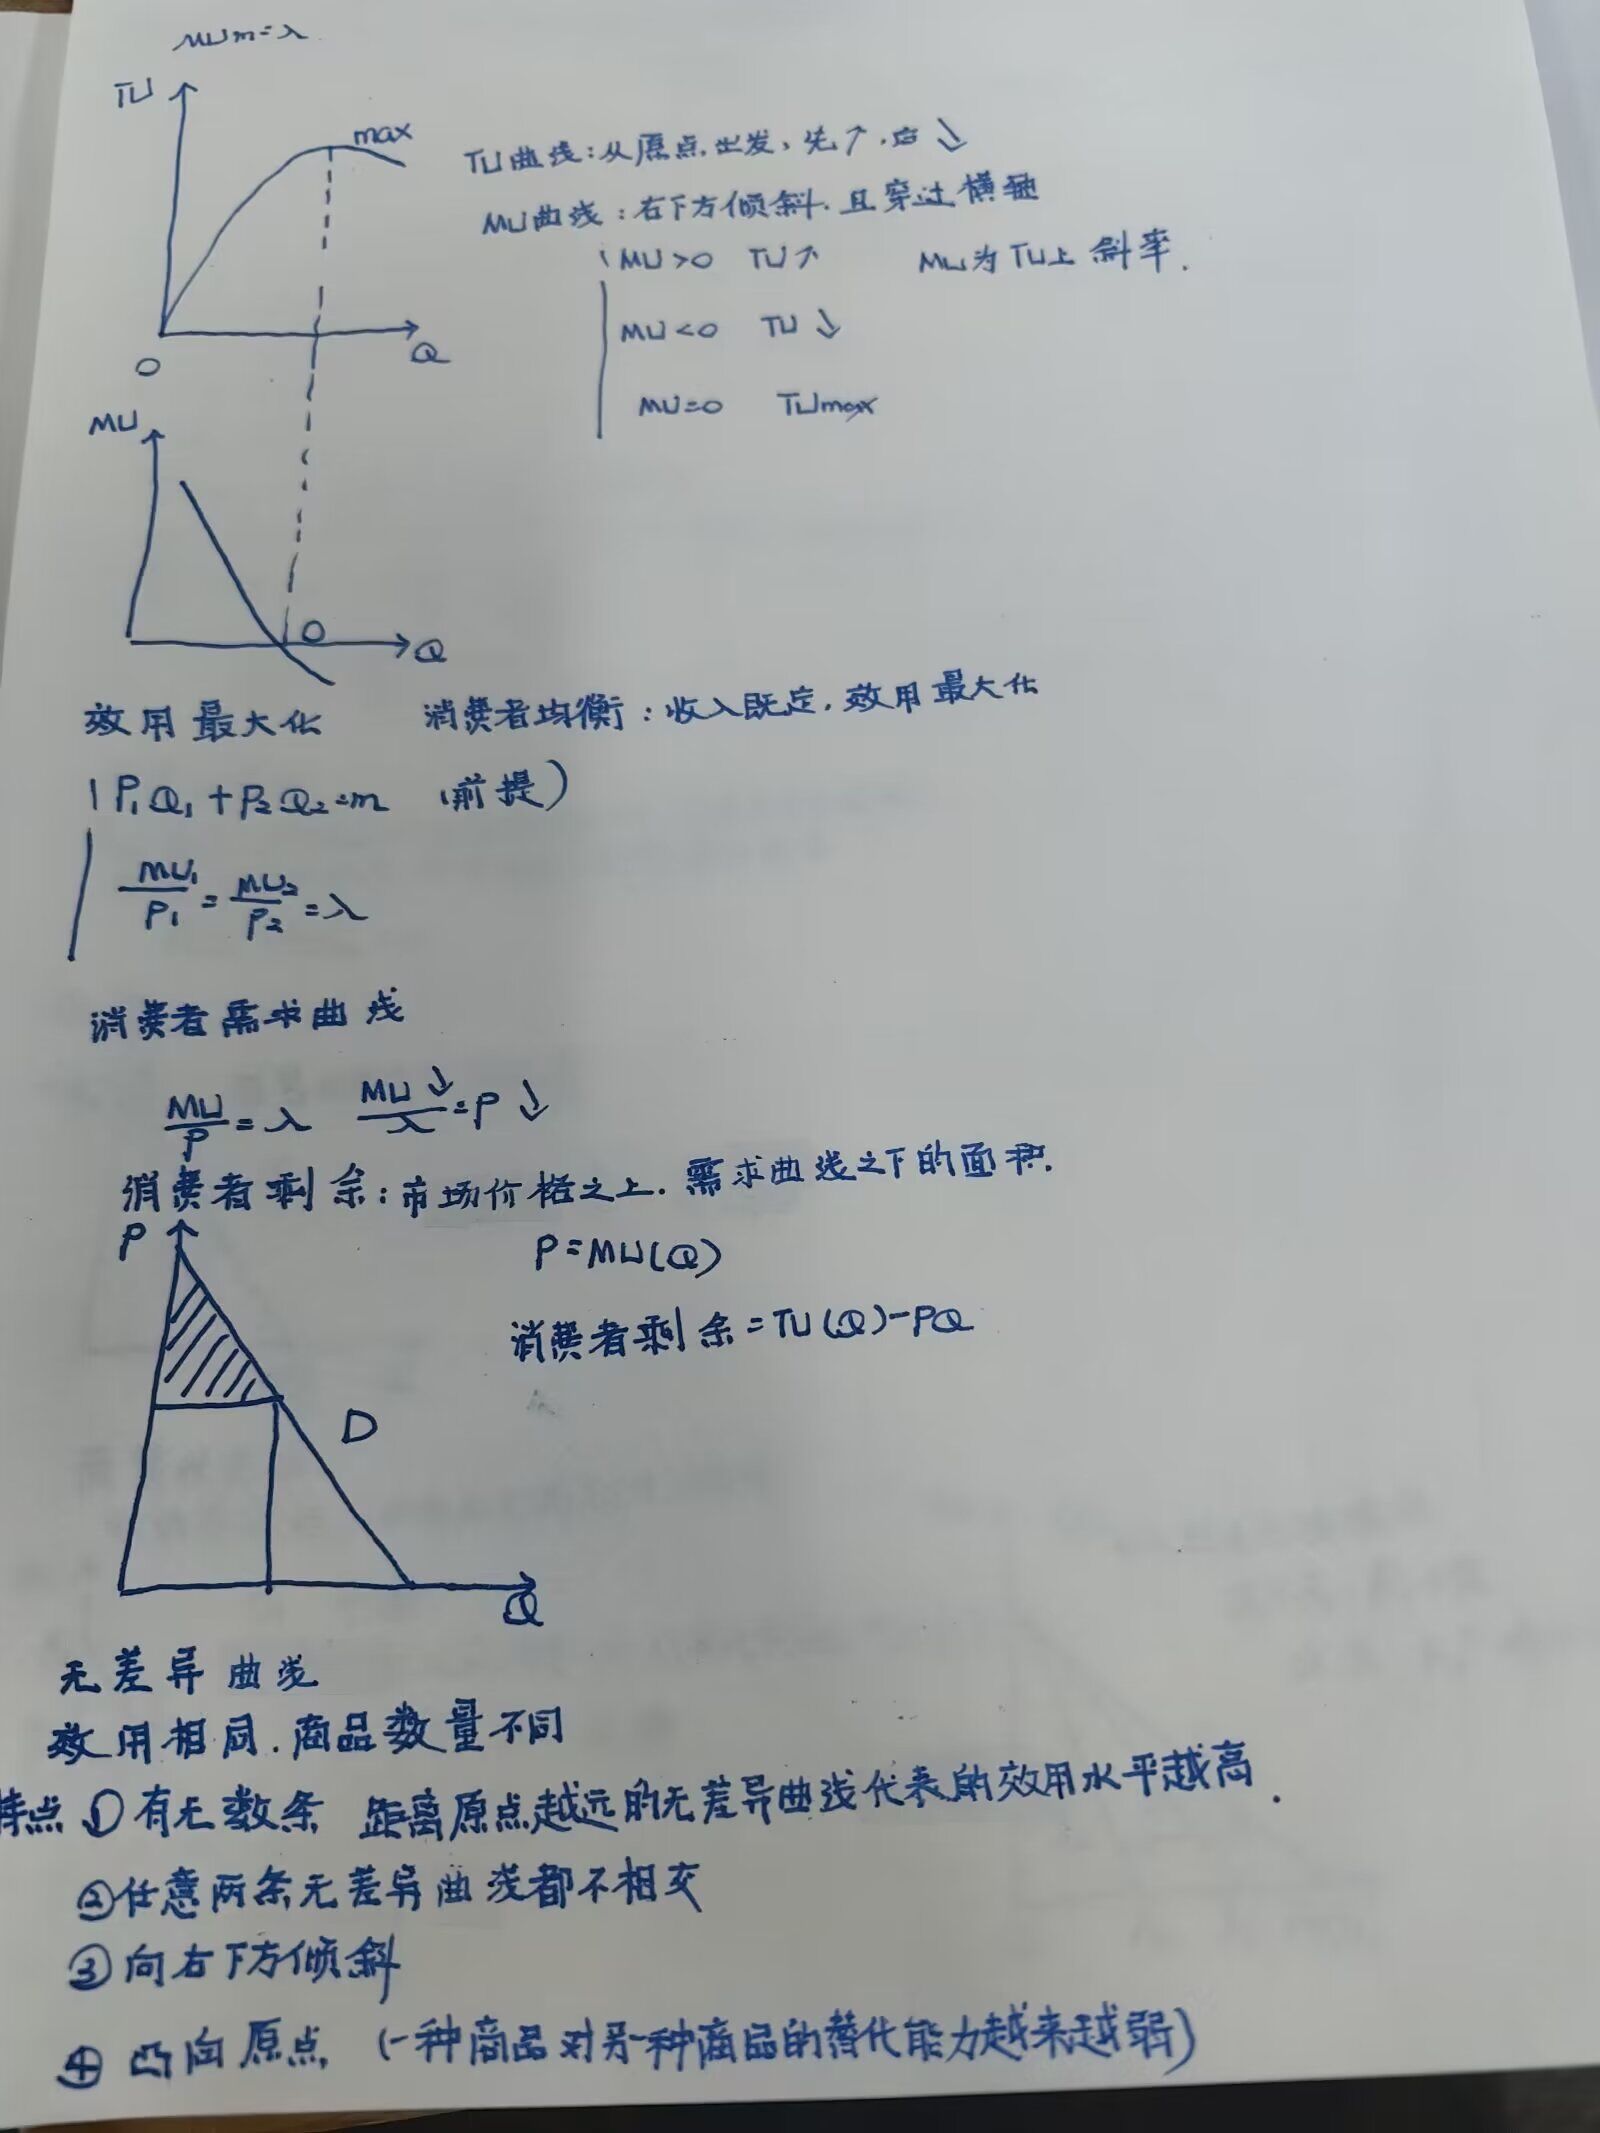 MUm=λ
TU
max
TU曲线:从原点出发,先↑,后↓
MU曲线:右下方倾斜.且穿过横轴
MU>0 TU↑ MU为TU上斜率.
MU<0 TU↓
MU=0 TUmax
O
Q
MU
O
Q
效用最大化 消费者均衡:收入既定,效用最大化
P₁Q₁+P₂Q₂=m (前提)
MU₁/P₁=MU₂/P₂=λ
消费者需求曲线
MU/P=λ MU↓/λ=P↓
消费者剩余:市场价格之上.需求曲线之下的面积.
P
P=MU(Q)
消费者剩余=TU(Q)-PQ
D
Q
无差异曲线
效用相同.商品数量不同
特点①有无数条 距离原点越远的无差异曲线代表的效用水平越高.
②任意两条无差异曲线都不相交
③向右下方倾斜
④凸向原点 (一种商品对另一种商品的替代能力越来越弱)